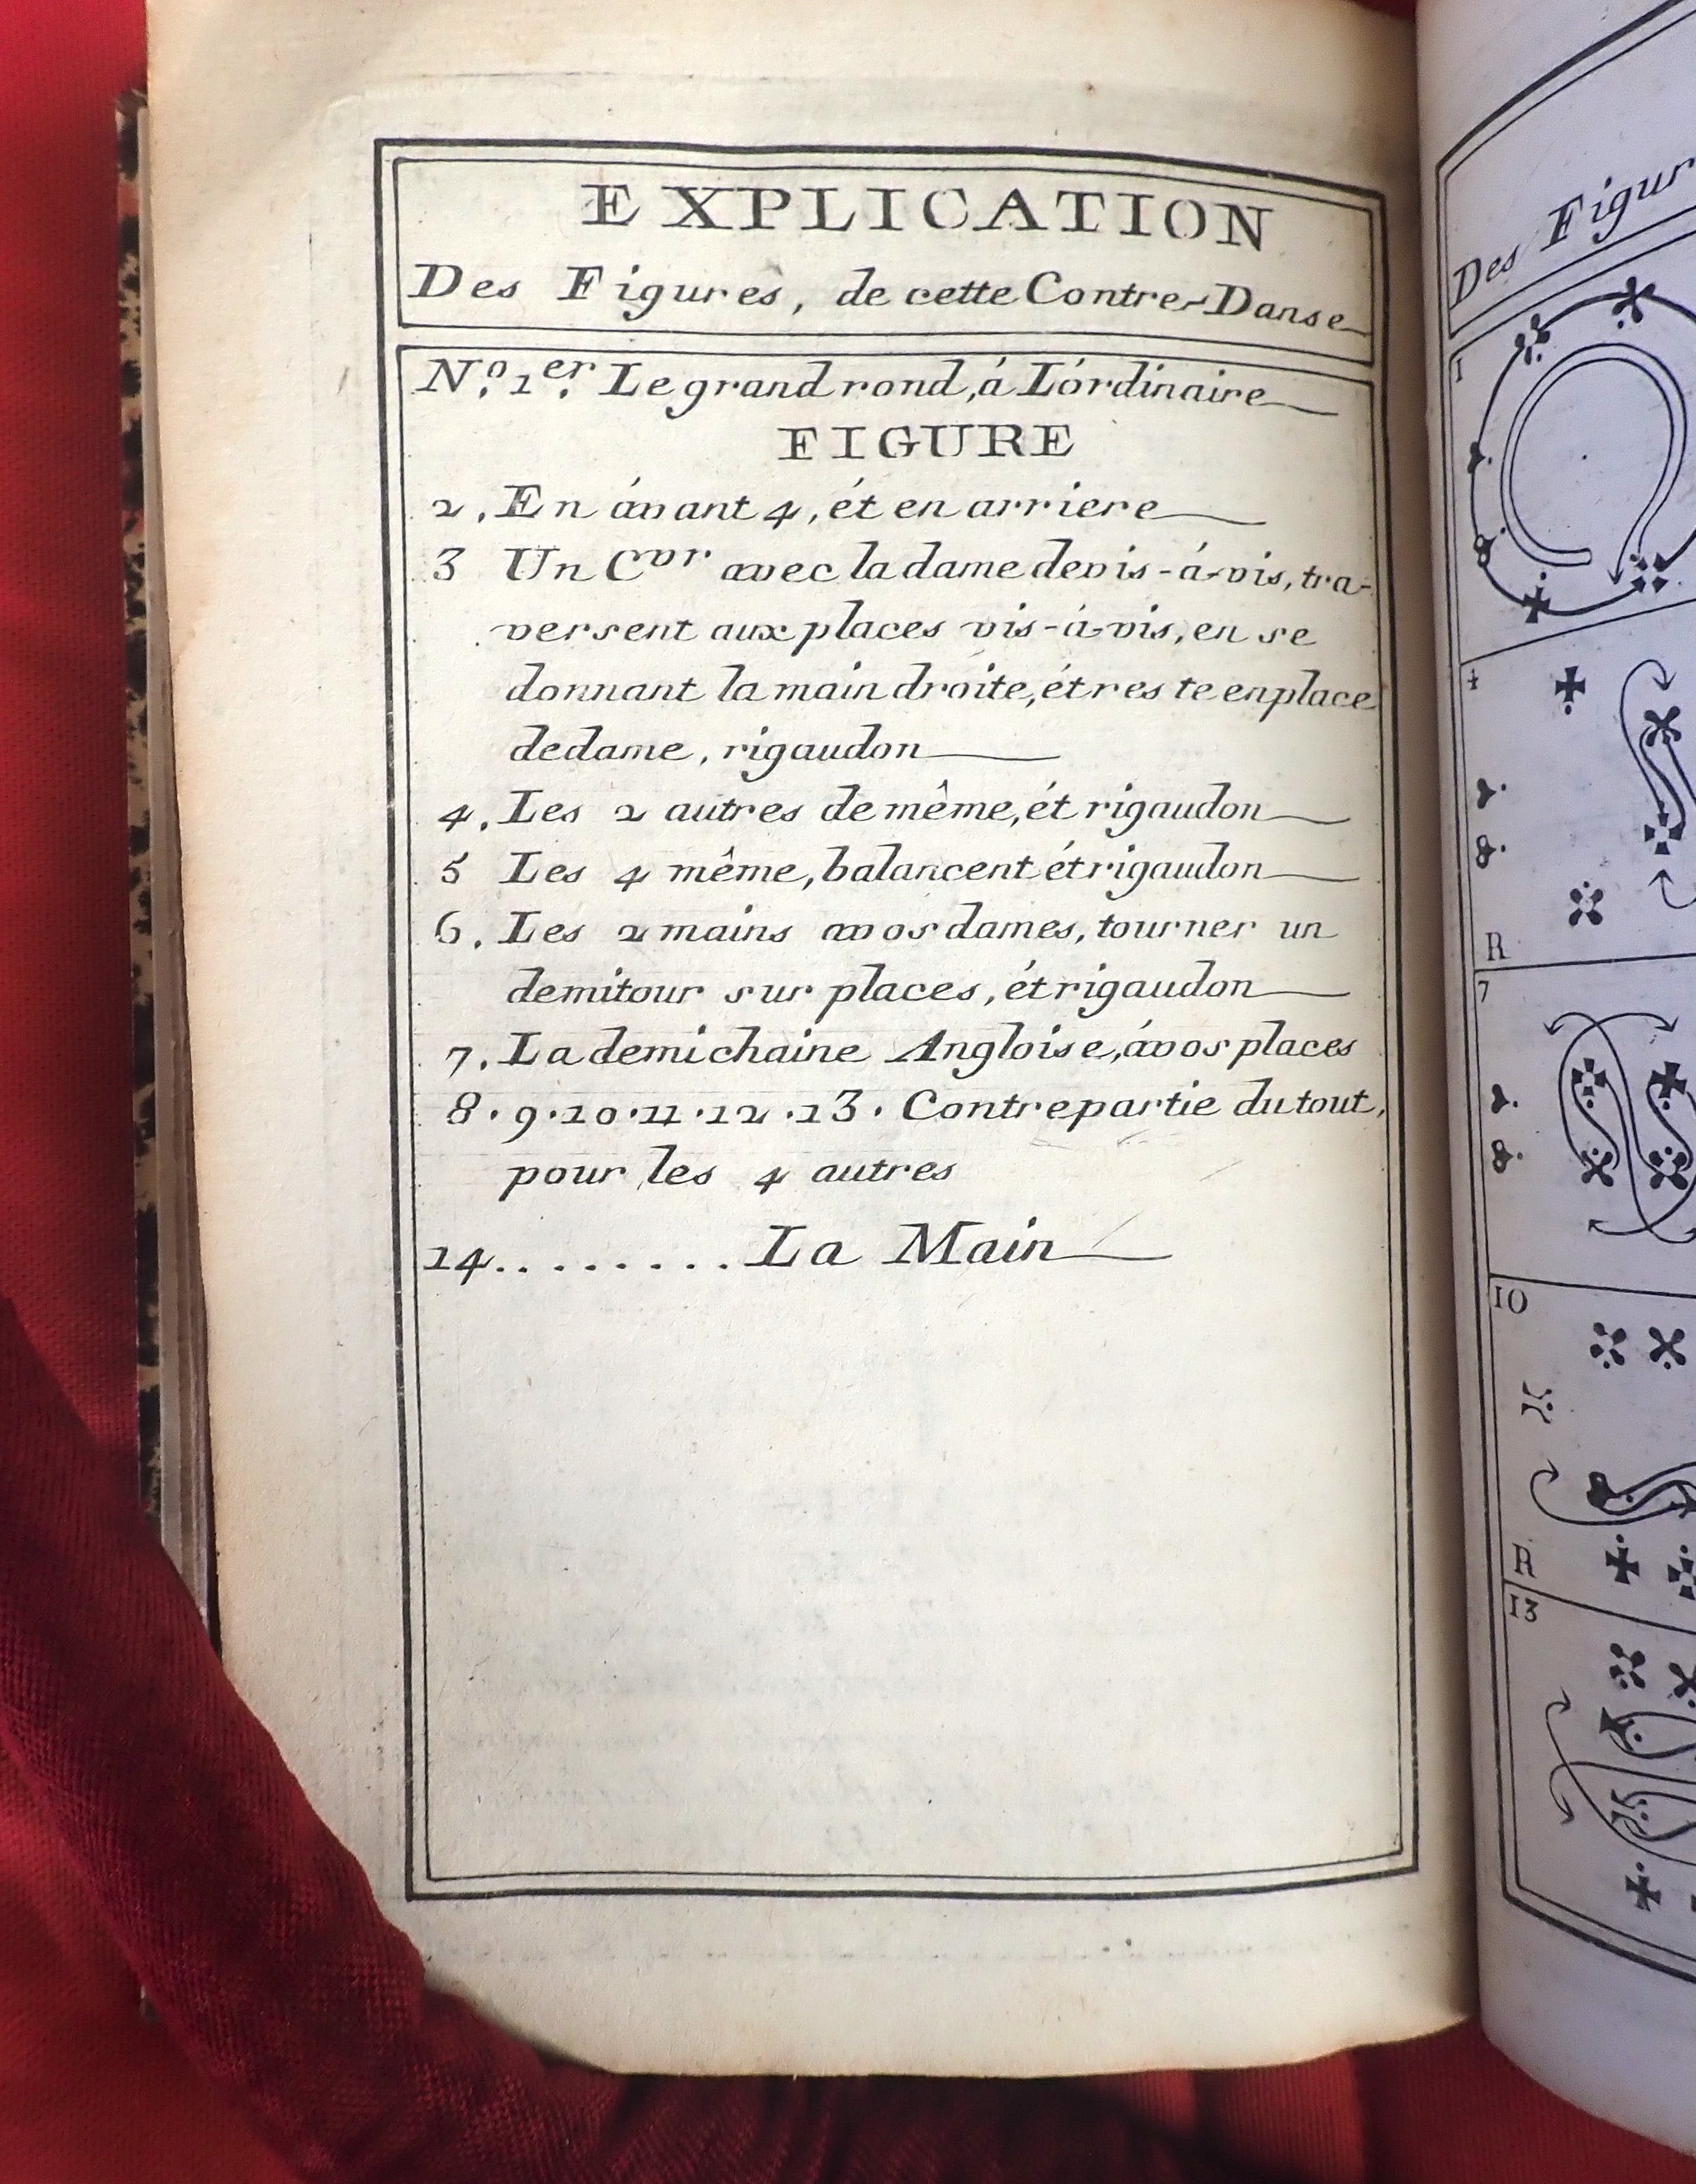 EXPLICATION
Des Figures, de cette Contre-Danse
N.º 1.er Le grand rond, á L'ordinaire
FIGURE
2. En ávant 4, ét en arriere
3 Un Cvr avec la dame de vis-á-vis, tra-
versent aux places vis-á-vis, en se
donnant la main droite, ét reste en place
de dame, rigaudon
4. Les 2 autres de même, ét rigaudon
5 Les 4 même, balancent ét rigaudon
6. Les 2 mains a vos dames, tourner un
demi tour sur places, ét rigaudon
7. La demi chaine Angloise, á vos places
8. 9. 10. 11. 12. 13. Contre partie du tout,
pour les 4 autres
14......... La Main
Des Figur
1
4
R
7
10
R
13